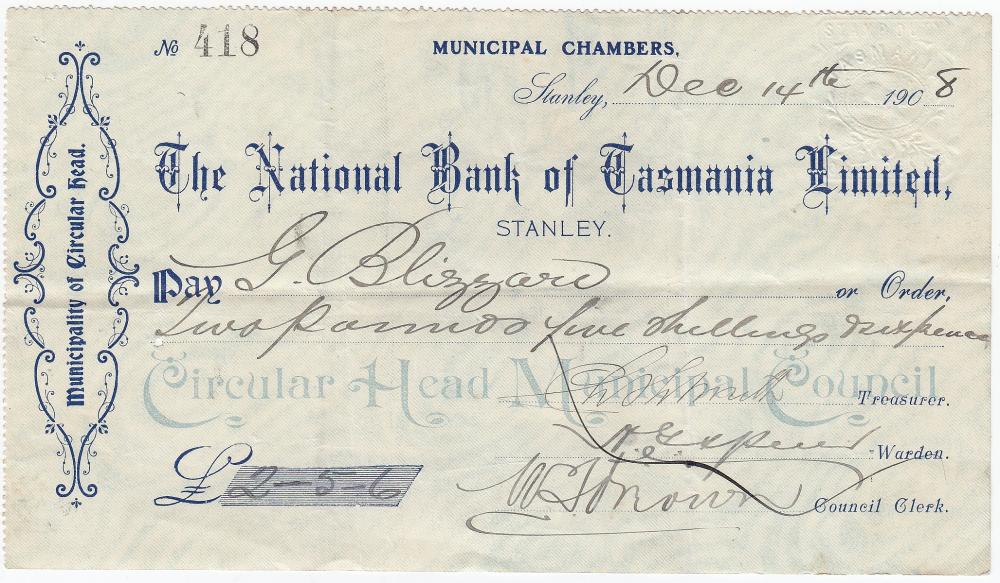 No 418
MUNICIPAL CHAMBERS,
Stanley, Dec 14th 1908
Municipality of Circular Head.
The National Bank of Tasmania Limited,
STANLEY.
Pay G. Blizzard or Order,
Two Pounds five shillings & sixpence
Circular Head Municipal Council
Treasurer.
Warden.
£ 2-5-6
Council Clerk.